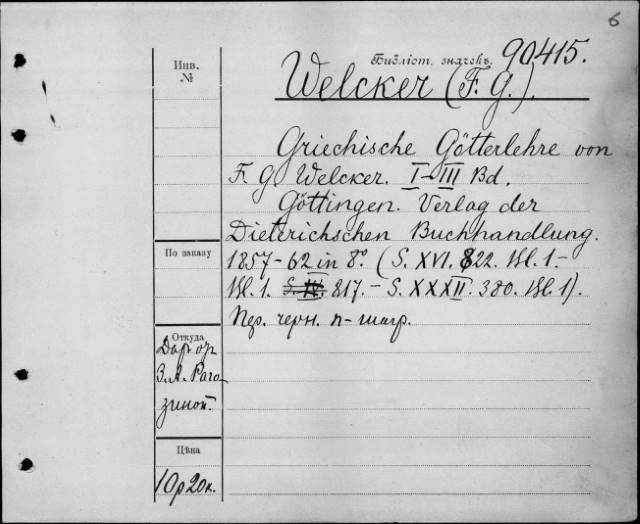 6
Инв.
№
Библіот. значекъ 90415.
Welcker (F. G.).
Griechische Götterlehre von
F. G. Welcker. I–III Bd.
Göttingen. Verlag der
Dieterichschen Buchhandlung.
По заказу
1857-62 in 8º. (S. XVI. 822. Bl. 1.–
Bl. 1. S. IV. 817. – S. XXXII. 380. Bl. 1).
Пер. черн. п-шагр.
Откуда
Дар от
З. А. Раго-
зиной.
Цѣна
10р20к.